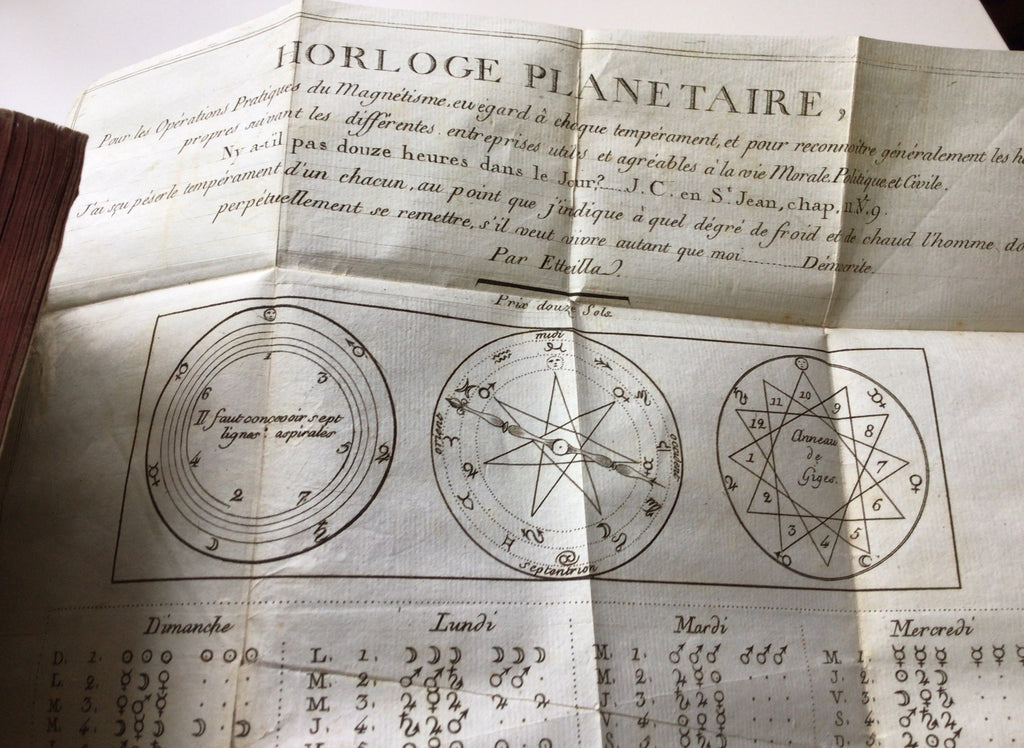 HORLOGE PLANETAIRE,
Pour les Opérations Pratiques du Magnétisme, eu égard à chaque tempérament, et pour reconnoitre généralement les
propres suivant les différentes entreprises utiles et agréables à la vie Morale, Politique, et Civile.
N'y a-t-il pas douze heures dans le Jour?.... J. C. en St. Jean, chap. 11. V. 9.
J'ai sçu péser le tempérament d'un chacun, au point que j'indique à quel dégré de froid et de chaud l'homme
perpétuellement se remettre, s'il veut vivre autant que moi............Démocrite.
Par Etteilla.
Prix douze Sols.
Il faut concevoir sept
lignes aspirales
1
3
5
7
2
4
6
midi
orient
occident
Septentrion
Anneau
de
Giges.
10
9
8
7
6
5
4
3
2
1
12
11
Dimanche Lundi Mardi Mercredi
D. 1. ☉ ☉ ☉ ☉ ☉ ☉ L. 1. ☽ ☽ ☽ ☽ ☽ ☽ M. 1. ♂ ♂ ♂ ♂ ♂ ♂ M. 1. ☿ ☿ ☿ ☿ ☿ ☿
L. 2. M. 2. M. 2. J. 2.
M. 3. M. 3. J. 3. V. 3.
M. 4. J. 4. V. 4. S. 4.